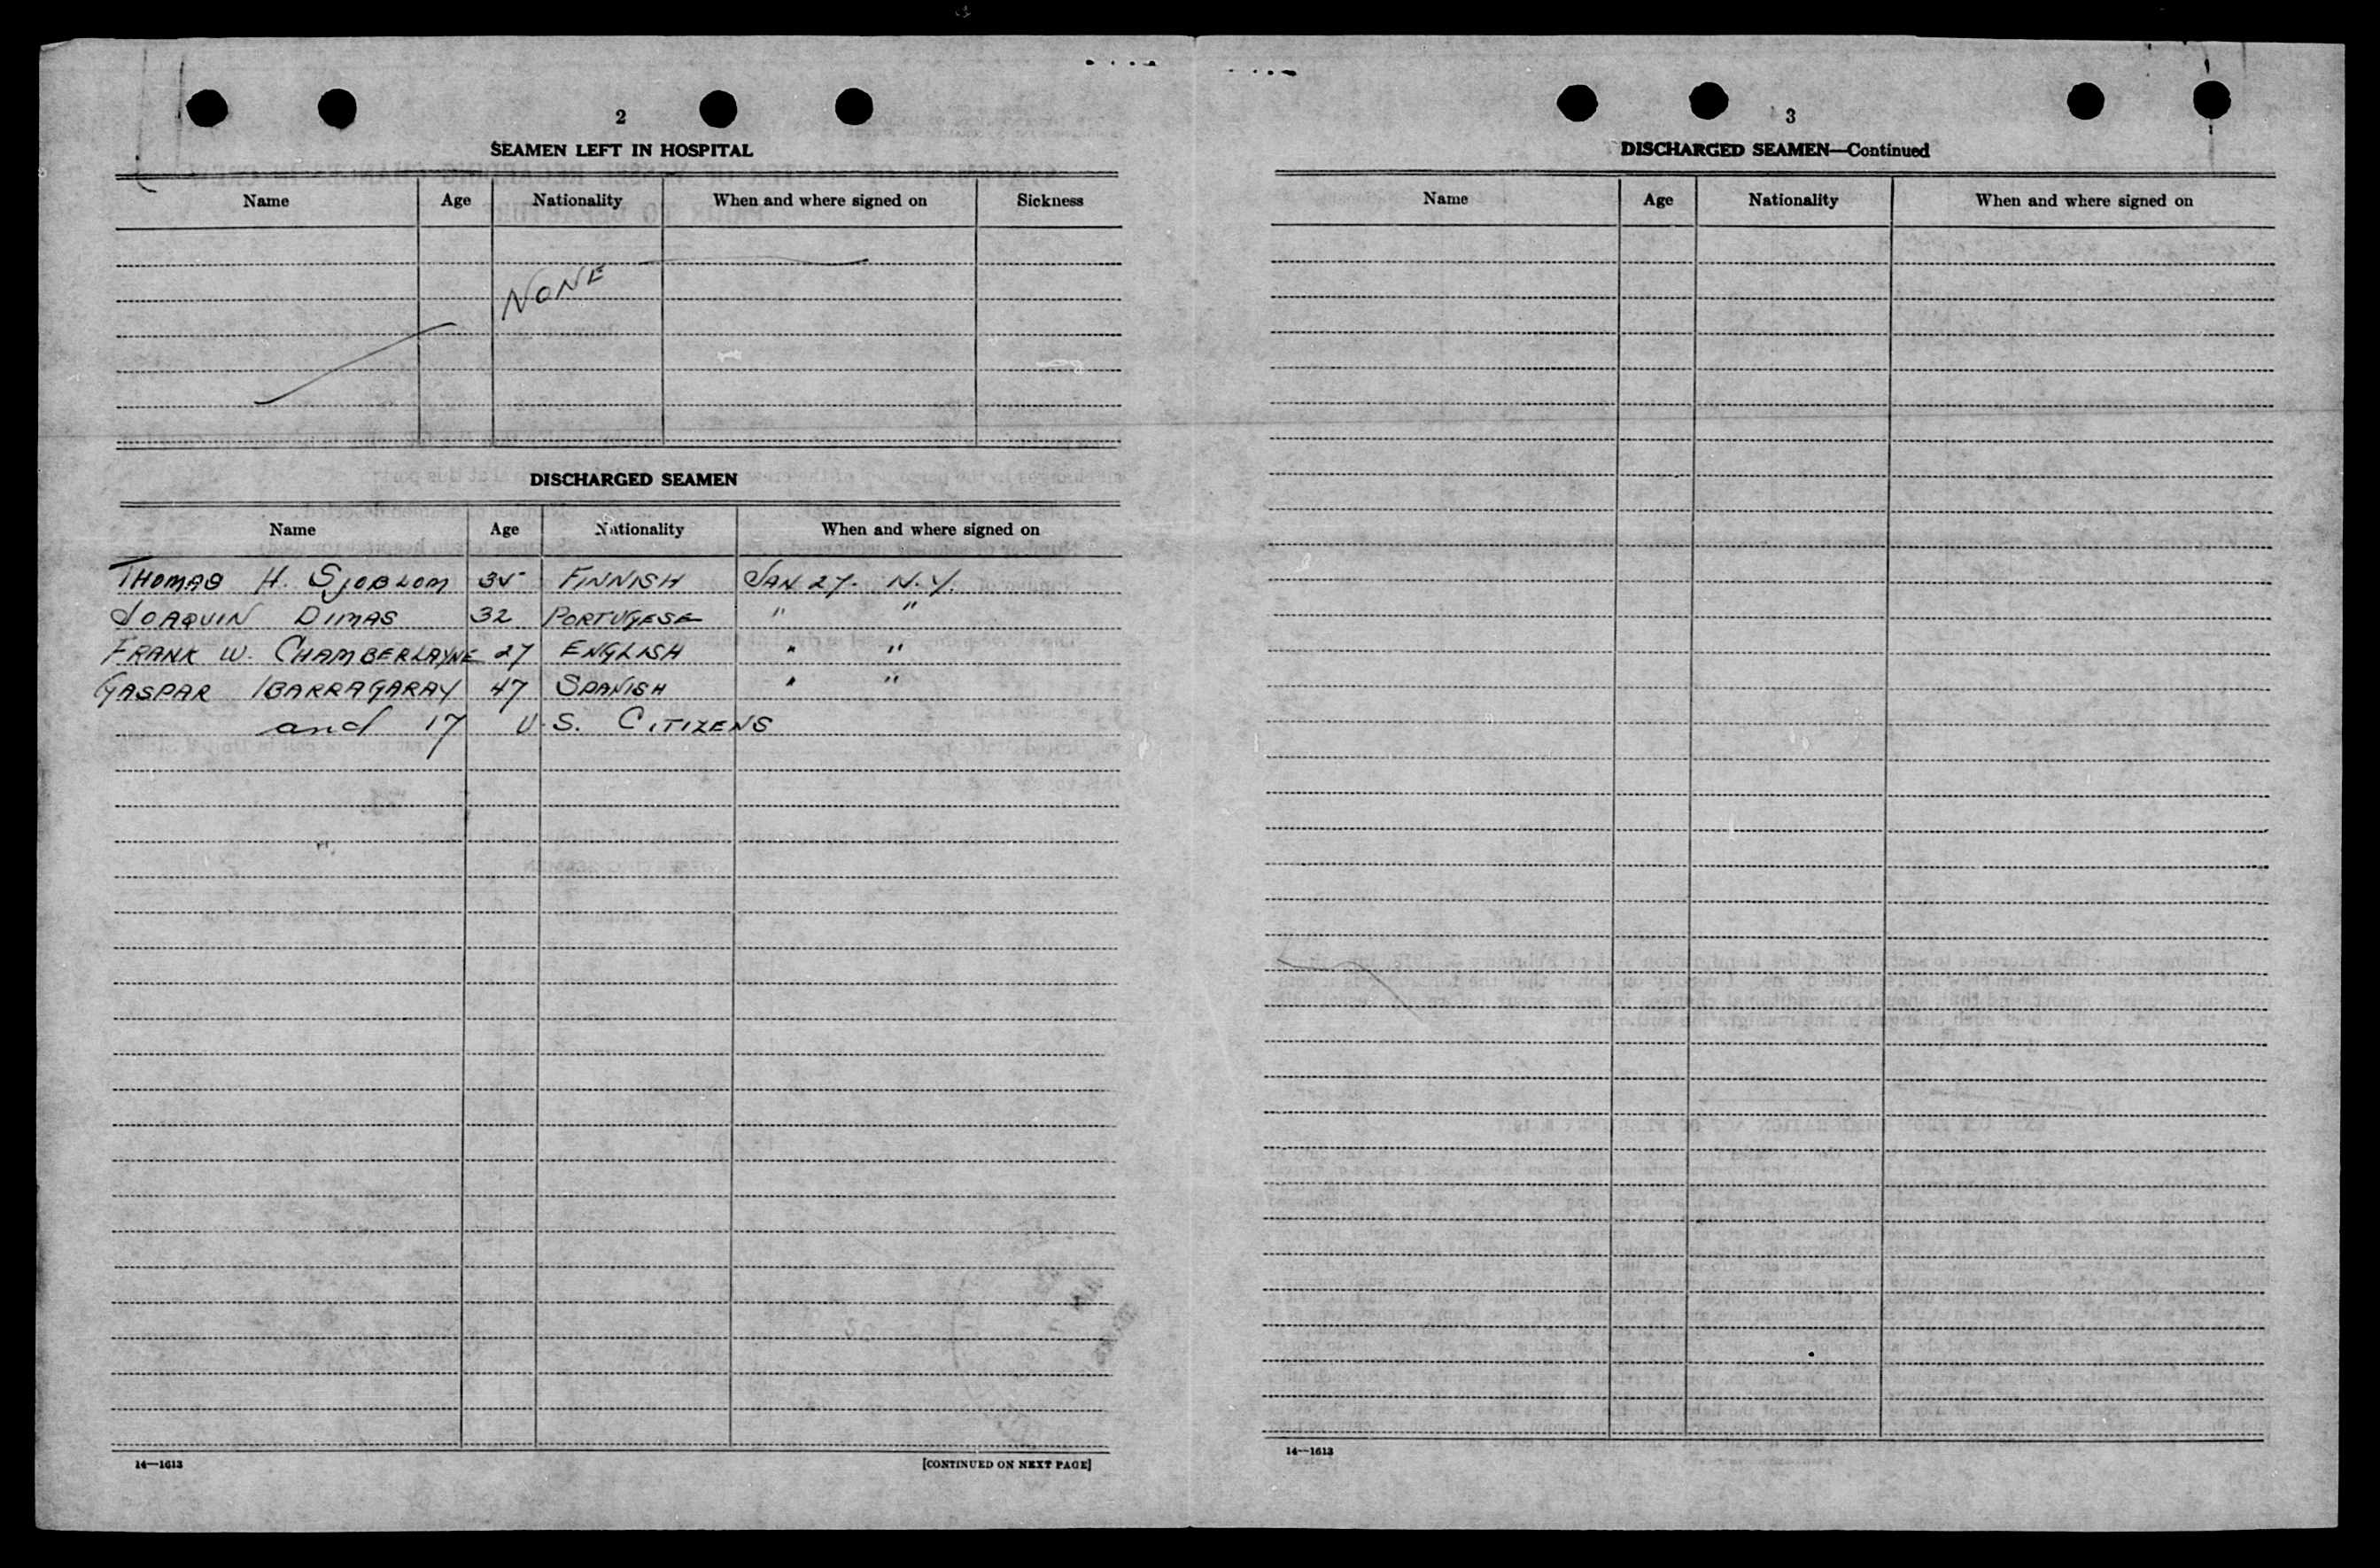 2
SEAMEN LEFT IN HOSPITAL
Name Age Nationality When and where signed on Sickness
NONE
DISCHARGED SEAMEN
Name Age Nationality When and where signed on
THOMAS H. SJOBLOM 35 FINNISH JAN 27. N.Y.
JOAQUIN DIMAS 32 PORTUGESE " "
FRANK W. CHAMBERLAYNE 27 ENGLISH " "
GASPAR IBARRAGARAY 47 SPANISH " "
and 17 U.S. CITIZENS
14—1613 [CONTINUED ON NEXT PAGE]
3
DISCHARGED SEAMEN—Continued
Name Age Nationality When and where signed on
14—1613